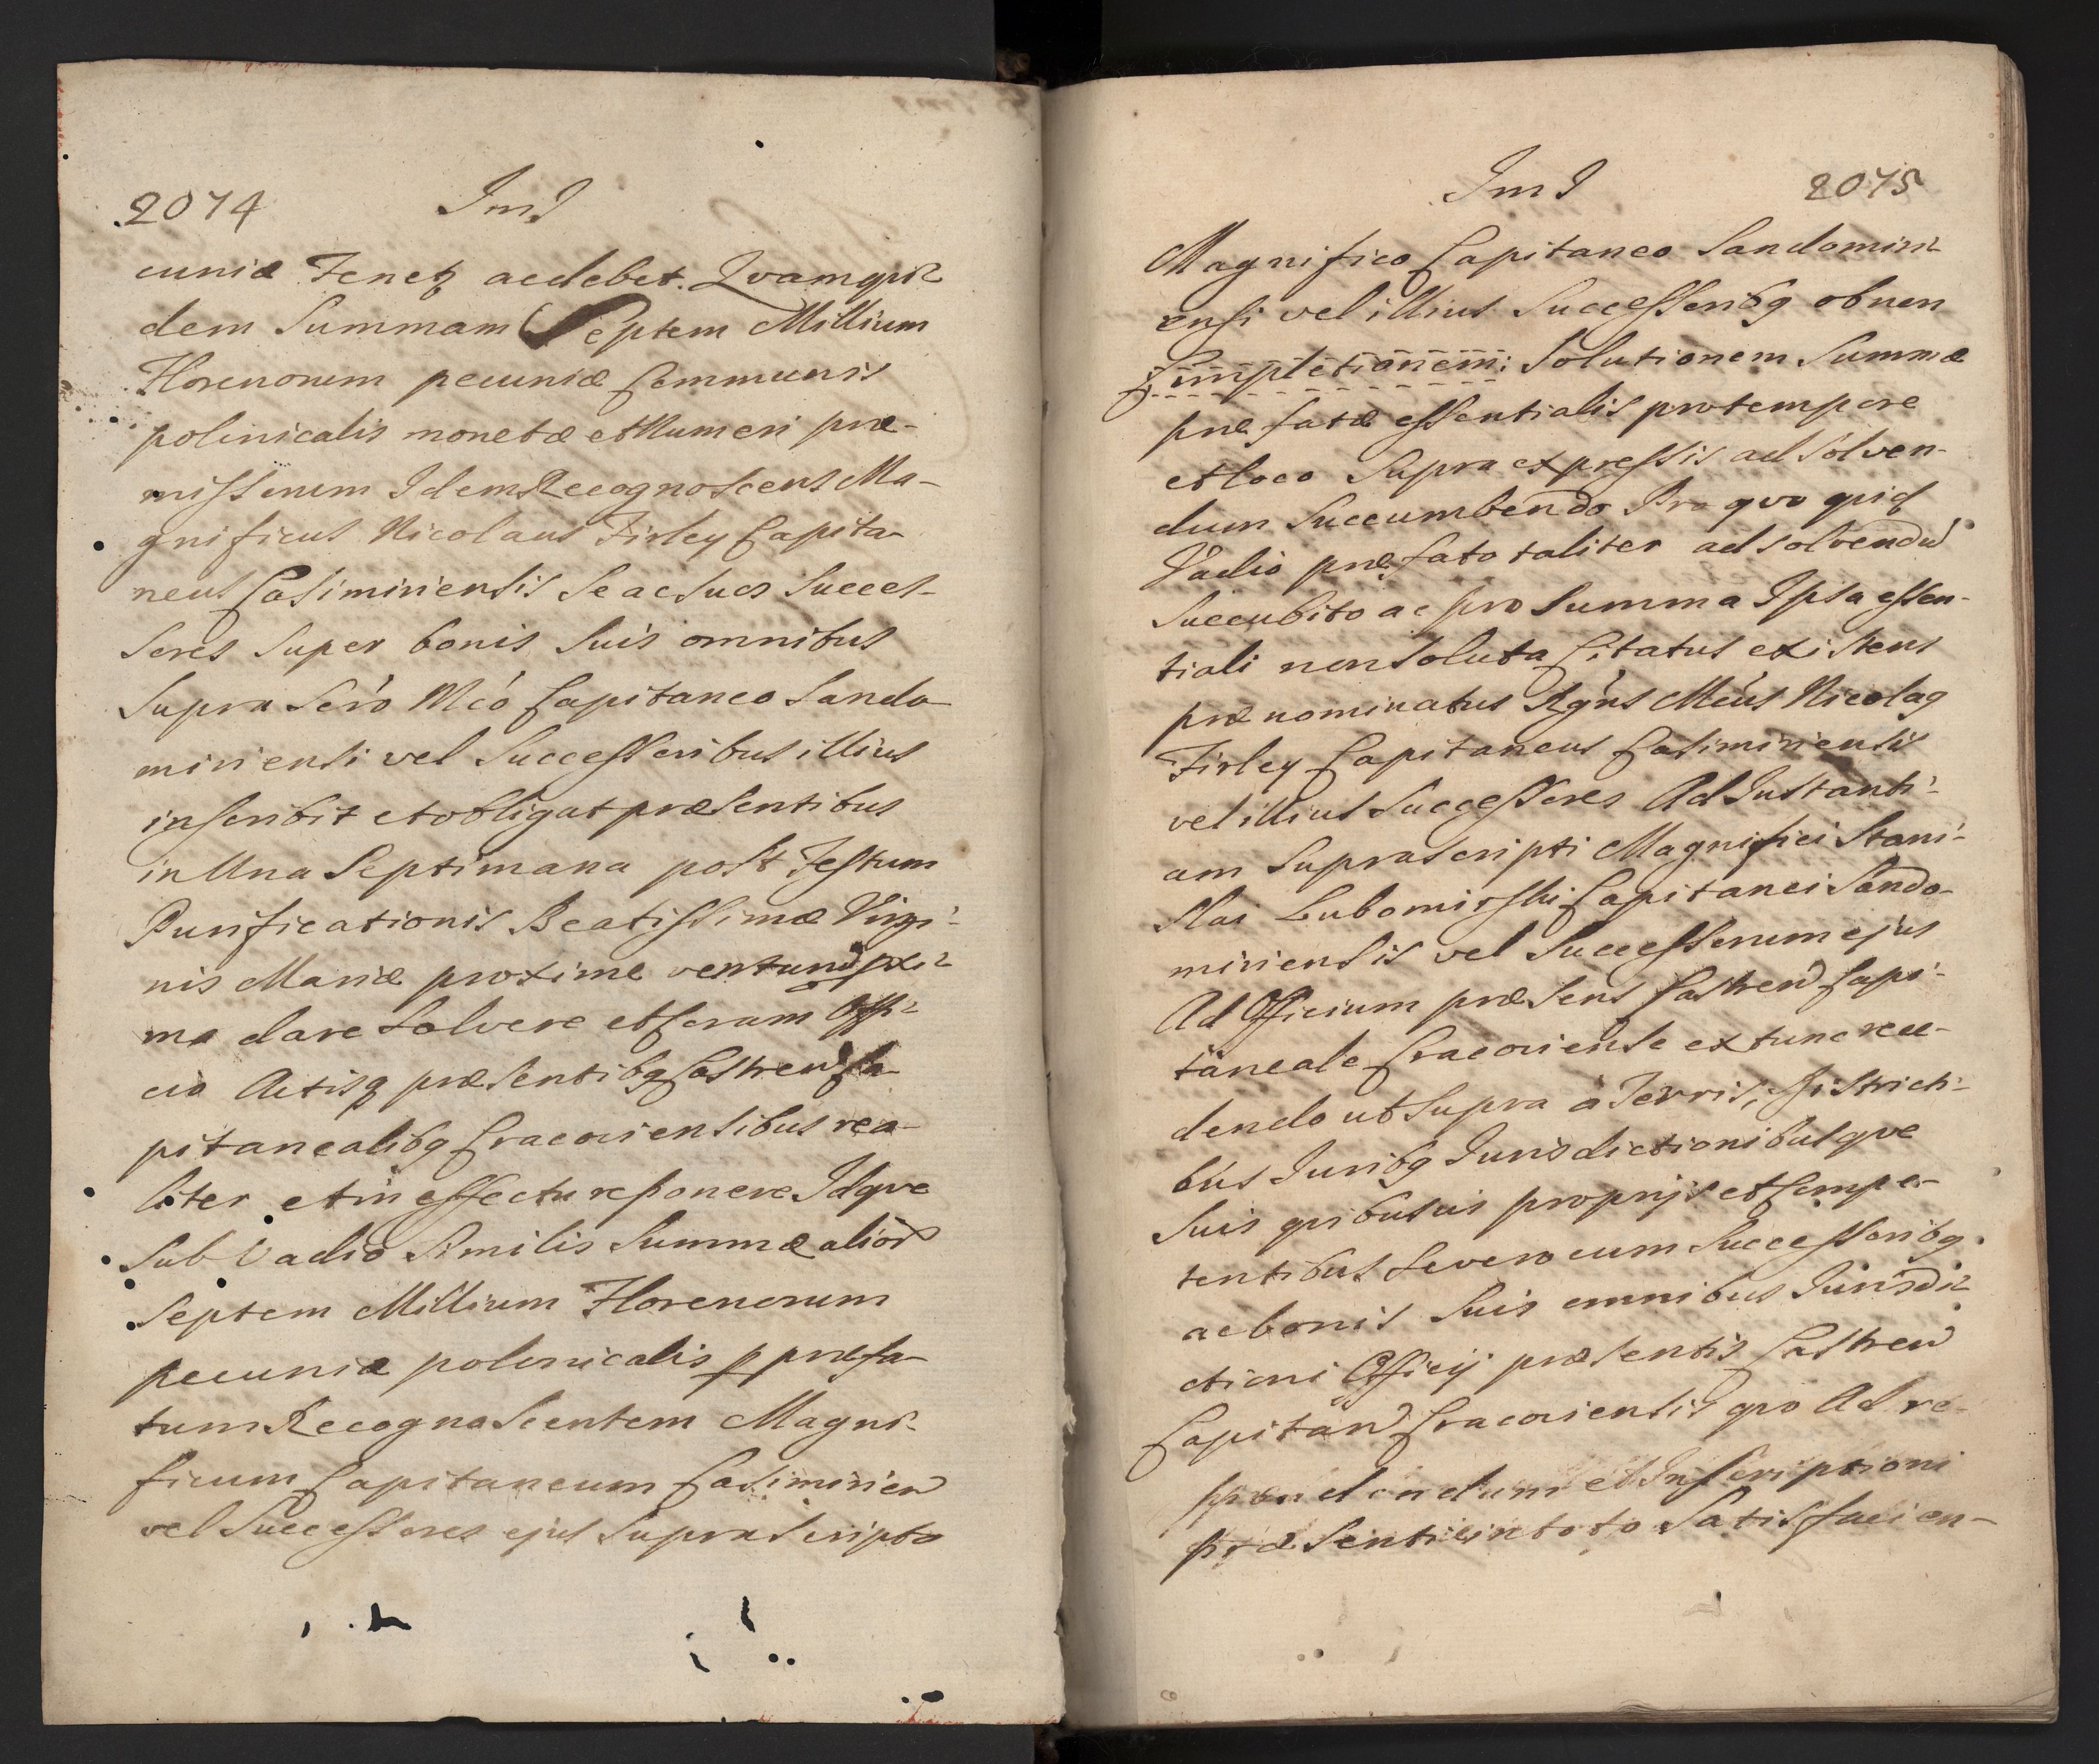 2074 ImJ
cuniæ Tenetq acdebet. Qvamqvi=
dem Summam Septem Millium
Florenorum pecuniæ Communis
polonicalis monetæ et Numeri præ-
missorum Idem Recognoscens Ma-
gnificus Nicolaus Firley Capita-
neus Casimiriensis Se ac Suos Succes-
sores Super bonis Suis omnibus
Supra Scr'o M'co Capitaneo Sando-
miriensi vel Successoribus illius
inscribit et obligat præsentibus
in Una Septimana post Festum
Purificationis Beatissimæ Virgi-
nis Mariæ proxime venturu pxi=
ma dare Solvere et coram Offi=
cio Actisq præsentibq Castren Ca-
pitanealibq Cracoviensibus rea-
liter et in effectu reponere Idqve
Sub Vadio Similis Summæ alior
Septem Millium Florenorum
pecuniæ polonicalis p præfa-
tum Recognoscentem Magni-
ficum Capitaneum Casimirien
vel Successores ejus Suprascripto
ImJ 2075
Magnifico Capitaneo Sandomiri=
ensi vel illius Successoribq ob non
Completionem: Solutionem Summæ
præfatæ essentialis pro tempore
et loco Supra expressis ad Solven-
dum Succumbendo Pro qvo qvid
Vadio præfato taliter ad solvendu
Succubito ac pro Summa Ipsa essen-
tiali non Soluta Citatus existens
prænominatus Rg'ns M'cus Nicolaq
Firley Capitaneus Casimiriensis
vel illius Successores Ad Instanti-
am Suprascripti Magnifici Stani-
slai Lubomirski Capitanei Sando-
miriensis vel Successorum ejus
Ad Officium præsens Castren Capi-
taneale Cracoviense extunc rece-
dendo ut Supra à Terris, Districti-
bus Juribq Jurisdictionibusqve
Suis qvibusvis proprijs et Compe-
tentibus Se vero cum Successoribq
ac bonis Suis omnibus Jurisdi=
ctioni Officij præsentis Castren
Capitan Cracoviensis qvo Ad re-
spondendum et Inscriptioni
præsenti in toto Satisfacien-